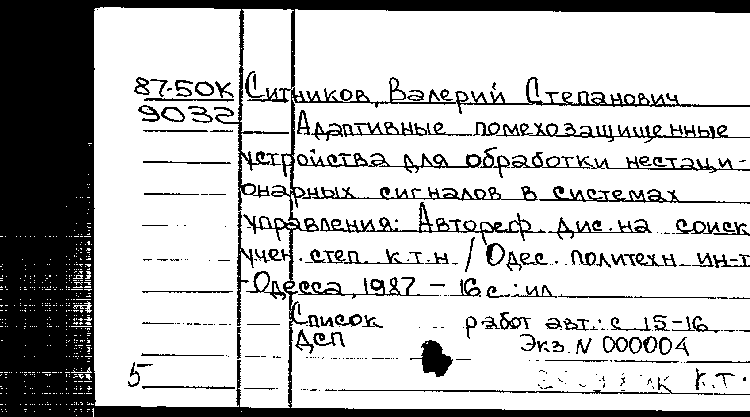 87-50К Ситников, Валерий Степанович
9032
Адаптивные помехозащищенные
устройства для обработки нестаци-
онарных сигналов в системах
управления: Автореф. дис. на соиск
учен. степ. к.т.н / Одес. политехн ин-т
-Одесса, 1987. - 16 с.: ил
Список работ авт.: с 15-16
ДСП Экз. N 000004
5 К.Т.